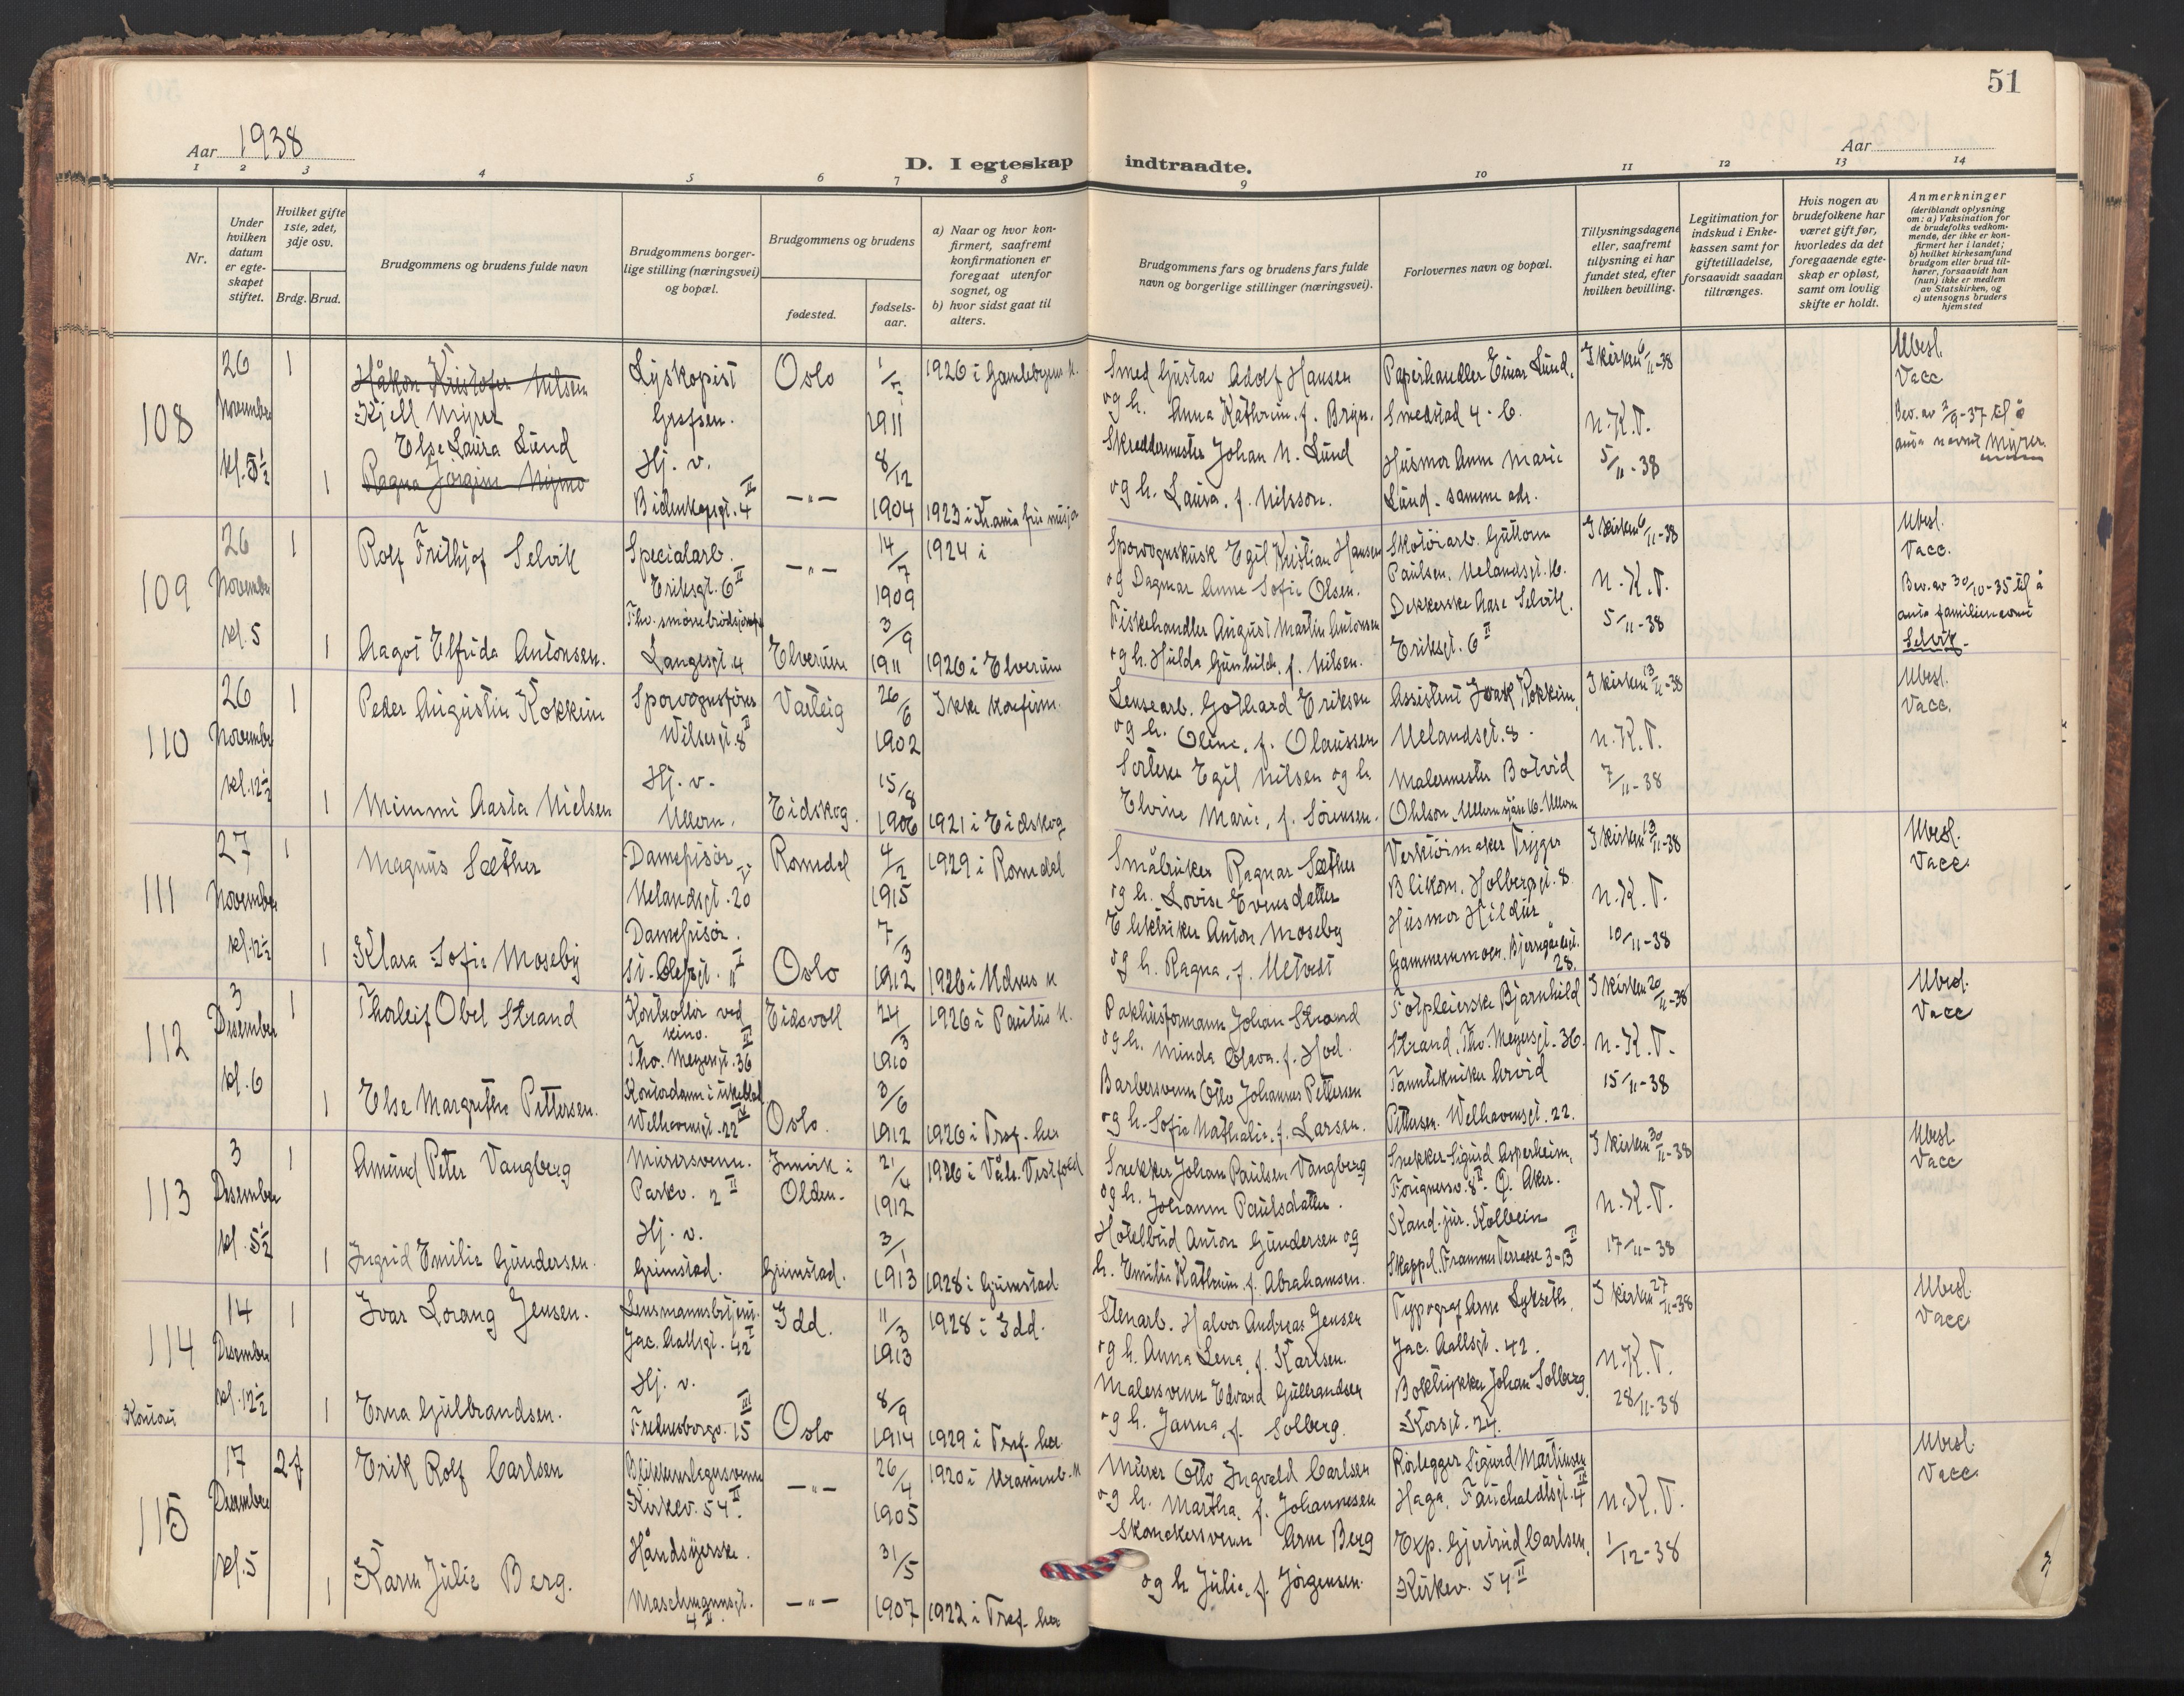 51
Aar 1938
D. I egteskap indtraadte.
Aar
1 2 3 4 5 6 7 8 9 10 11 12 13 14
Nr.
Under hvilken datum er egte-skapet stiftet.
Hvilket gifte 1ste, 2det, 3dje osv.
Brdg. Brud.
Brudgommens og brudens fulde navn
Brudgommens borger-lige stilling (næringsvei) og bopæl.
Brudgommens og brudens
fødested.
fødsels-aar.
a) Naar og hvor kon-firmert, saafremt konfirmationen er foregaat utenfor sognet, og
b) hvor sidst gaat til alters.
Brudgommens fars og brudens fars fulde navn og borgerlige stillinger (næringsvei).
Forlovernes navn og bopæl.
Tillysningsdagene eller, saafremt tillysning ei har fundet sted, efter hvilken bevilling.
Legitimation for indskud i Enke-kassen samt for giftetilladelse, forsaavidt saadan tiltrænges.
Hvis nogen av brudefolkene har været gift før, hvorledes da det foregaaende egte-skap er opløst, samt om lovlig skifte er holdt.
Anmerkninger
(deriblandt oplysning om: a) Vaksination for de brudefolks vedkom-mende, der ikke er kon-firmert her i landet; b) hvilket kirkesamfund brudgom eller brud til-hører, forsaavidt han (hun) ikke er medlem av Statskirken, og c) utensogns bruders hjemsted
108
26 November kl. 5½
1
Håkon Kristofer Nilsen
Kjell Myrer
Lyskopist
Grefsen.
Oslo
1911
1926 i Gamlebyens K.
Smed Gustav Adolf Hansen
og h. Anna Kathrine f. Bryn.
Papirhandler Einar Lund.
Smedstad 4 - C.
I kirken 6/11-38
N.K.T.
5/11-38
Ubesl.
Vacc
Bev. av 2/9-37 til å
anta navnet Myrer.
1
Else Laura Lund
Ragna Jørgine Nymo
Hj. v.
Bidenkapsgt. 4 II
— " —
8/12 1904
1923 i Kr.ania frie misjon
Skreddermester Johan N. Lund
og h. Laura, f. Nilsson.
Husmor Anne Marie
Lund - samme adr.
109
26 November kl. 5
1
Rolf Frithjof Selvik
Specialarb.
Eriksgt. 6 II
— " —
14/7 1909
1924 i
Sporvognskusk Egil Kristian Hansen
og Dagmar Anne Sofie Olsen.
Skotøiarb. Guttorm
Paulsen. Uelandsgt. 16.
I kirken 6/11-38
N.K.T.
5/11-38
Ubesl.
Vacc.
Bev. av 30/10-35 til å
anta familienavnet
Selvik.
1
Aagot Elfrida Antonsen.
Langesgt. 4
Elverum
3/9 1911
1926 i Elverum
Fiskehandler August Martin Antonsen
og h. Hulda Gunhilde, f. Nilsen.
Dekkerske Aase Selvik.
Eriksgt. 6 II
110
26 November kl. 12½
1
Peder Augustin Kokkim
Sporvognsfører
Wilsesgt. 8 II
Varteig
26/6 1902
Ikke konfirm.
Lensearb. Gothard Eriksen
og h. Oline, f. Olaussen
Assistent Isak Kokkim,
Uelandsgt. 8.
I kirken 13/11-38
N.K.T.
7/11-38
Ubesl.
Vacc.
1
Mimmi Aasta Nielsen
Hj. v.
Ullern.
Eidskog.
15/8 1906
1921 i Eidskog
Sorterer Egil Nilsen og h.
Elvine Marie, f. Sørensen.
Malermester Botvid
111
27 November kl. 12½
1
Magnus Sæther
Damefrisør
Uelandsgt. 20
Romsdal
4/2 1915
1929 i Romsdal
Småbruker Ragnar Sæther
og h. Lovise Evensdatter
Verktøimaker Trygger
Blikom. Holbergsgt. 8.
I kirken 13/11-38
N.K.T.
10/11-38
Ubesl.
Vacc.
1
Klara Sofie Moseby
Damefrisør.
St. Olafsgt. 11 I
Oslo
7/3 1912
1926 i Udres K
Elektriker Anton Moseby
og h. Ragna, f. Ultvedt
Husmor Hildur
28.
112
3 Desember kl. 6
1
Thorleif Obel Strand
Kontrollør ved
kino.
Tho. Meyersgt. 36 II
Eidsvoll
24/3 1910
1926 i Paulus K.
Pakhusformann Johan Strand
og h. Minda Olava, f. Hod.
Fotpleierske Bjarnhild
Strand, Tho. Meyersgt. 36.
I kirken 20/11-38
N.K.T.
15/11-38
Ubesl.
Vacc
1
Else Margrethe Pettersen.
Kontordame i ukeblad
Welhavensgt. 22 IV
Oslo.
3/6 1912
1926 i Tref. her
Barbersvenn Otto Johannes Pettersen
og h. Sofie Nathalie, f. Larsen.
Tanntekniker Arvid
Pettersen. Welhavensgt. 22.
113
3 Desember kl. 5½
1
Amund Peter Vangberg
Murersvenn.
Parkv. 2 II
Innvik i
Olden.
21/4 1912
1926 i Våle. Vestfold
Snekker Johan Paulsen Vangberg
og h. Johanne Paulsdatter.
Snekker Sigurd Asperheim,
I kirken 30/11-38
N.K.T.
17/11-38
Ubesl.
Vacc
1
Ingrid Emilie Gundersen.
Hj. v.
Grimstad.
Grimstad.
3/1 1913
1928 i Grimstad
Hotelbud Anton Gundersen og
h. Emilie Kathrine f. Abrahamsen.
Kand. jur. Kolbein
Skappel, Framnes Terrasse 3-13 II
114
Kontoret
14 Desember kl. 12½
1
Ivar Lorang Jensen.
Lensmannsbetjent.
Jac. Aallsgt. 42 I
Idd.
11/3 1913
1928 i Idd.
Stenarb. Halvor Andreas Jensen
og h. Anna Lena, f. Karlsen.
Typograf Arne Lykseth,
Jac. Aallsgt. 42.
I kirken 27/11-38
N.K.T.
28/11-38
Ubesl.
Vacc
1
Erna Gulbrandsen.
Hj. v.
Fredensborgv. 15 III
Oslo
8/9 1914
1929 i Tref. her
Malersvenn Edvard Gulbrandsen
og h. Janna, f. Solberg.
Boktrykker Johan Solberg,
Korsgt. 24.
115
17 Desember kl. 5
2 f
Erik Rolf Carlsen
Blikkenslagersvenn
Kirkev. 54 II.
— " —
26/4 1905
1920 i Uranienb. K
Murer Otto Ingvald Carlsen
og h. Martha, f. Johannesen
Rørlegger Sigurd Martinsen
Haga, Fauchaldtsgt. 4 II
N.K.T.
1/12-38
Ubesl.
Vacc.
1
Karen Julie Berg.
Håndsyerske.
Maschmannsgt.
4 II.
— " —
31/5 1907
1922 i Tref. her
Arne Berg
og h. Julie, f. Jørgensen.
Exp. Gjertrud Carlsen,
Kirkev. 54 II